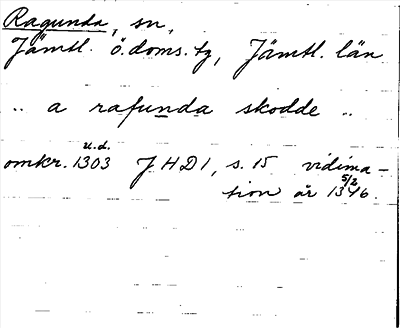 Ragunda, sn,
Jämtl. ö. doms. tg, Jämtl. län
.. a rafunda skodde ..
u.d.
omkr. 1303 JHD1, s. 15 vidima-
5/2
tion år 1346.